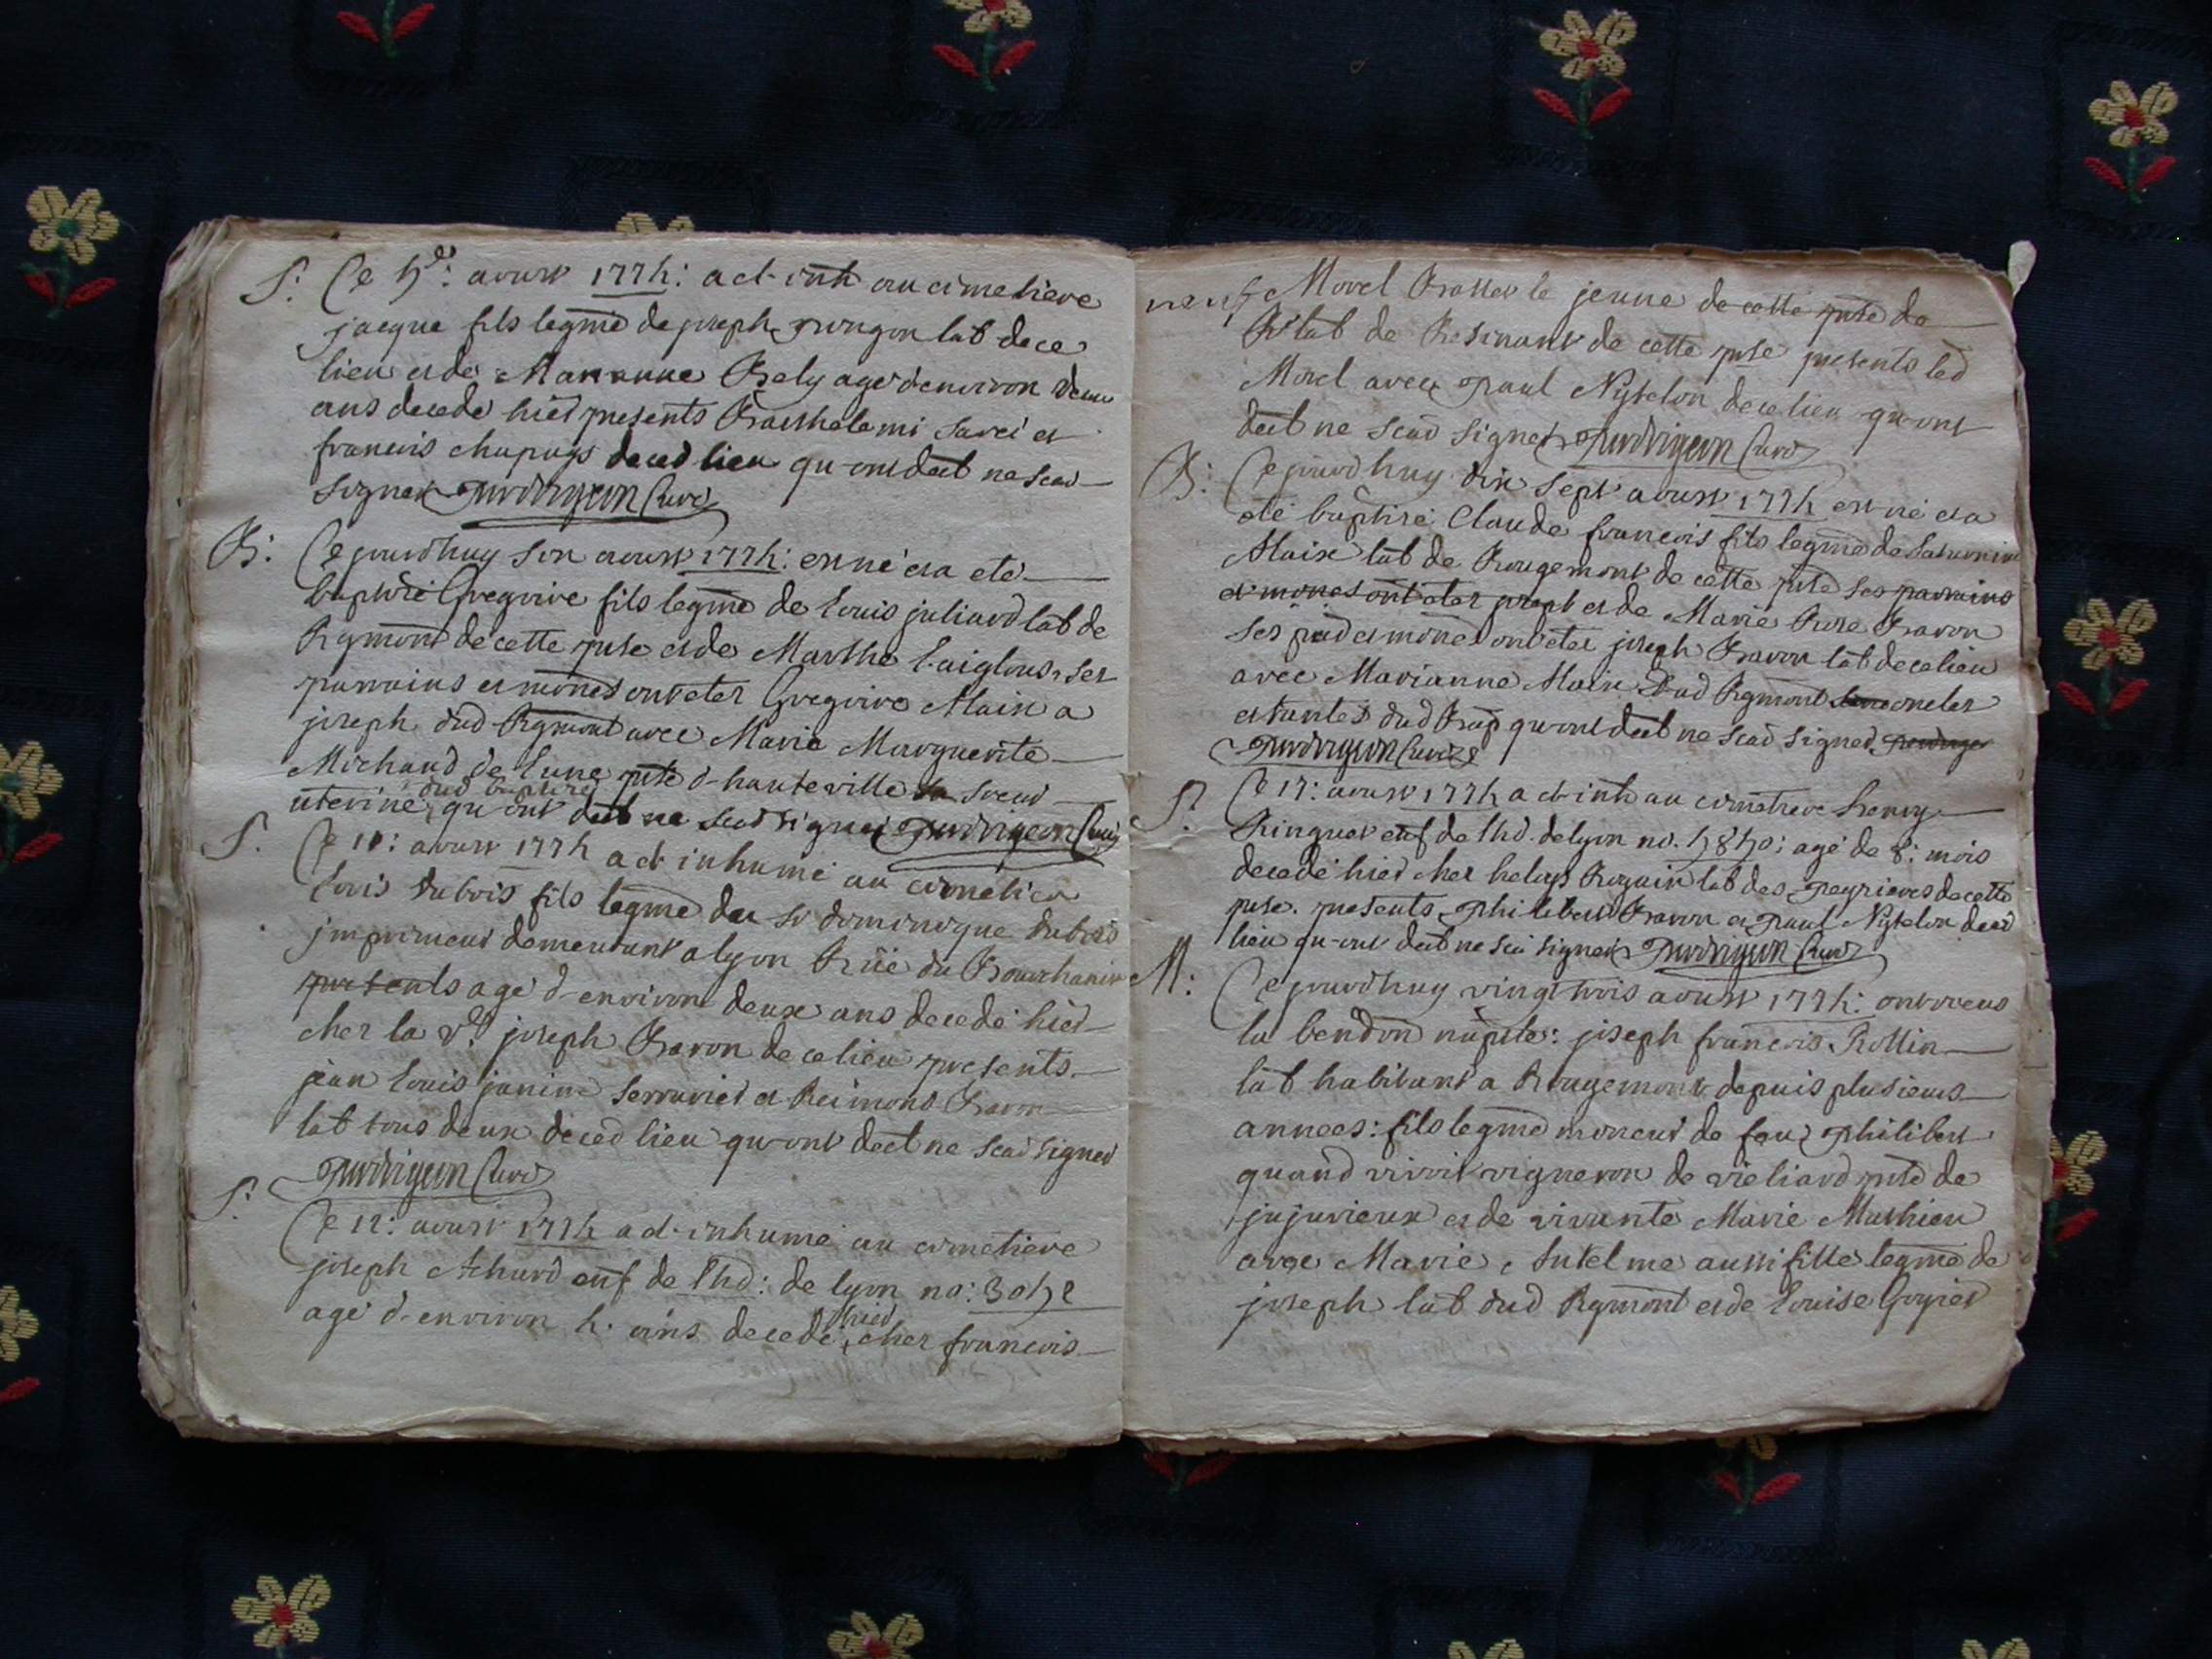 S: Ce 5e: aoust 1774: a et inh au cimetiere
jacque fils legme de joseph pungon lab de ce
lieu et de Marianne Bely age denviron deux
ans decede hier presents Barthelemi savei et
francois chapuys decedlieu qu-ont dect ne scav
signer curé
B: Ce jourdhuy six aoust 1774: est né et a eté
baptisé Gregoire fils legme de louis juliard lab de
Rgmont de cette psse et de Marthe laiglous. ses
parrains et mones ont eter Gregoire Alaix a
joseph dud Rgmont avec Marie Marguerite
Michaud de lune psse d-hauteville sa soeur
dud baptisé
uterine, qu'ont dect ne scav signer curé
S. Ce 11: aoust 1774 a et inhumé au cimetier
louis dubois fils legme du sr dominique dubois
imprimeur demeurant a lyon Rüe du Bourchanin
presents agé d-environ deux ans decedé hier
cher la ve: joseph Baron de ce lieu presents
jean louis janin serrurier et Reimond Baron
lab tous deux decedlieu qu-ont dect ne scav signer
curé
S. Ce 12: aoust 1774 a et-inhumé au cimetiere
joseph Achard enf de lhd: de lyon no: 3052
hier
agé d-environ 4. ans decedé, cher francois
neuf Morel Brallet le jeune de cette psse de
lab de Resinant de cette psse presents led
Morel avec paul Nytelon de ce lieu qu-ont
dect ne scav signer curé
B: Ce jourdhuy dix sept aoust 1774 est né et a
eté baptisé Claude francois fils legme de Saturnin
Alaix lab de Rougemont de cette psse ses parrains
et mones ont eter joseph et de Marie Rose Baron
ses prad et mones ont eter joseph Baron lab de ce lieu
avec Marianne Alaix dud Rgmont oncles
et tantes dud Bap qu-ont dect ne scav signer
curé
S. Ce 17: aoust 1774 a et inh au cimetiere henry
Ringuet enf de lhd. de lyon no. 5850: agé de 8: mois
decedé hier cher helays Roguin lab des peyrieres de cette
psse. presents philibert Baron et paul Nytelon deced
lieu qu-ont dect ne sca signer curé
M: Ce jourdhuy vingt trois aoust 1774: ont receus
la bendon nuptle: joseph francois Rollin
lab habitant a Rougemont depuis plusieurs
annees: fils legme mineur de feu philibert
quand vivoit vigneron de vieliard psse de
jujurieux et de vivante Marie Mathieu
avec Marie Antelme aussi fille legme de
joseph lab dud Rgmont et de louise Goyret